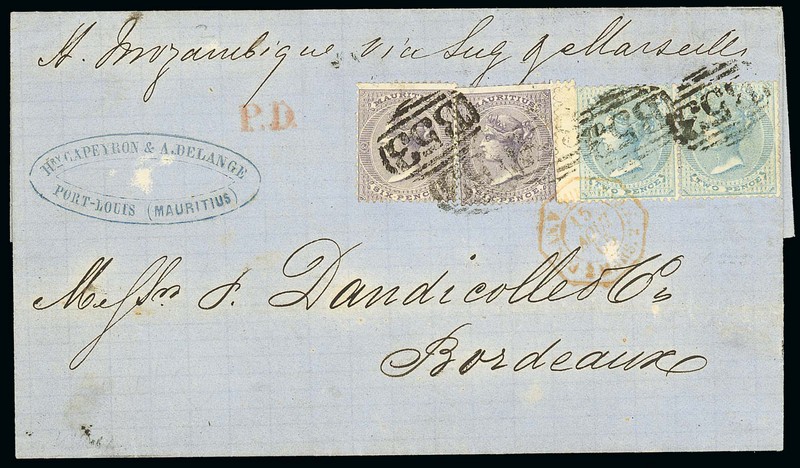 Mozambique via Suez & Marseille
P.D.
Hry CAPEYRON & A. DELANGE
PORT-LOUIS (MAURITIUS)
MAURITIUS
SIX PENCE
MAURITIUS
SIX PENCE
TWO PENCE
TWO PENCE
B53
B53
B53
15
Messrs Dandicolle & Co
Bordeaux